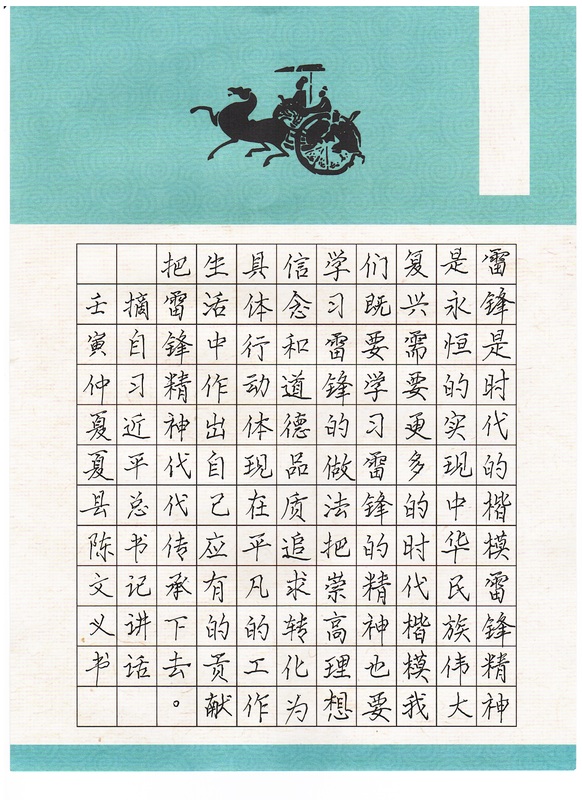 雷锋是时代的楷模雷锋精神
是永恒的实现中华民族伟大
复兴需要更多的时代楷模我
们既要学习雷锋的精神也要
学习雷锋的做法把崇高理想
信念和道德品质追求转化为
具体行动体现在平凡的工作
生活中作出自己应有的贡献
把雷锋精神代代传承下去。
摘自习近平总书记讲话
壬寅仲夏夏县陈文义书